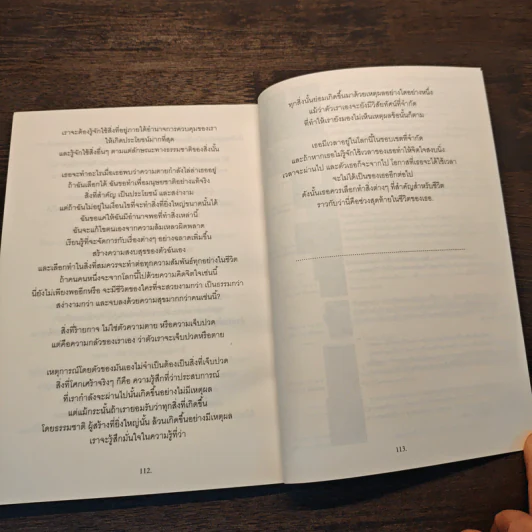 เราจะต้องรู้จักใช้สิ่งที่อยู่ภายใต้อำนาจการควบคุมของเรา
ให้เกิดประโยชน์มากที่สุด
และรู้จักใช้สิ่งอื่นๆ ตามแต่ลักษณะทางธรรมชาติของสิ่งนั้น
เธอจะทำอะไรเมื่อเธอพบว่าความตายกำลังไล่ล่าเธออยู่
ถ้าฉันเลือกได้ ฉันขอทำเพื่อมนุษยชาติอย่างแท้จริง
สิ่งที่สำคัญ เป็นประโยชน์ และสง่างาม
แต่ถ้าฉันไม่อยู่ในเงื่อนไขที่จะทำสิ่งที่ยิ่งใหญ่ขนาดนั้นได้
ฉันขอแค่ให้ฉันมีอำนาจพอที่ทำสิ่งเหล่านี้
ฉันจะแก้ไขตนเองจากความล้มเหลวผิดพลาด
เรียนรู้ที่จะจัดการกับเรื่องต่างๆ อย่างฉลาดเพิ่มขึ้น
สร้างความสงบสุขของตัวฉันเอง
และเลือกทำในสิ่งที่สมควรจะทำต่อทุกความสัมพันธ์ทุกอย่างในชีวิต
ถ้าคนคนหนึ่งจะจากโลกนี้ไปด้วยความคิดจิตใจเช่นนี้
นี่ยังไม่เพียงพออีกหรือ จะมีชีวิตของใครที่จะสวยงามกว่า เป็นธรรมกว่า
สง่างามกว่า และจบลงด้วยความสุขมากกว่าคนเช่นนี้?
สิ่งที่ร้ายกาจ ไม่ใช่ตัวความตาย หรือความเจ็บปวด
แต่คือความกลัวของเราเอง ว่าตัวเราจะเจ็บปวดหรือตาย
เหตุการณ์โดยตัวของมันเองไม่จำเป็นต้องเป็นสิ่งที่เจ็บปวด
สิ่งที่โศกเศร้าจริงๆ ก็คือ ความรู้สึกที่ว่าประสบการณ์
ที่เรากำลังจะผ่านไปนั้นเกิดขึ้นอย่างไม่มีเหตุผล
แต่แม้กระนั้นถ้าเรายอมรับว่าทุกสิ่งที่เกิดขึ้น
โดยธรรมชาติ ผู้สร้างที่ยิ่งใหญ่นั้น ล้วนเกิดขึ้นอย่างมีเหตุผล
เราจะรู้สึกมั่นใจในความรู้ที่ว่า
112.
ทุกสิ่งนั้นย่อมเกิดขึ้นมาด้วยเหตุผลอย่างใดอย่างหนึ่ง
แม้ว่าตัวเราเองจะยังมีวิสัยทัศน์ที่จำกัด
ที่ทำให้เรายังมองไม่เห็นเหตุผลข้อนั้นก็ตาม
เธอมีเวลาอยู่ในโลกนี้ในขอบเขตที่จำกัด
และถ้าหากเธอไม่รู้จักใช้เวลาของเธอทำให้จิตใจสงบนิ่ง
เวลาจะผ่านไป และตัวเธอก็จะจากไป โอกาสที่เธอจะได้ใช้เวลา
จะไม่ได้เป็นของเธออีกต่อไป
ดังนั้นเธอควรเลือกทำสิ่งต่างๆ ที่สำคัญสำหรับชีวิต
ราวกับว่านี่คือช่วงสุดท้ายในชีวิตของเธอ.
113.